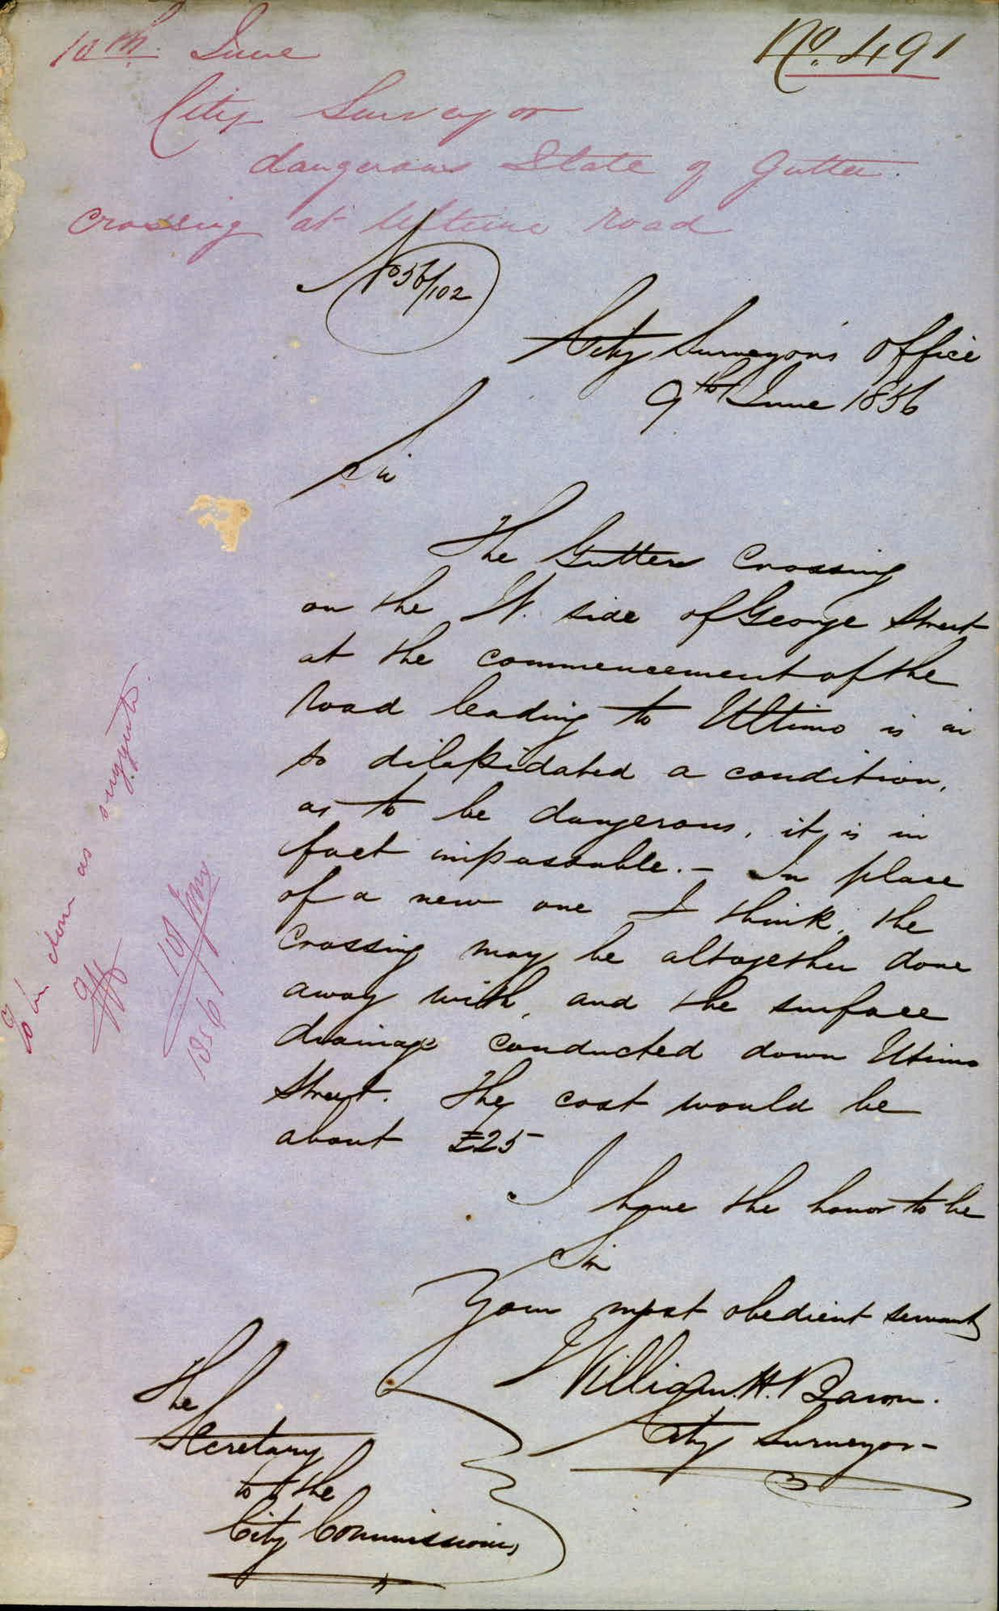 No. 491
10th. June
City Surveyor
dangerous State of Gutter
Crossing at Ultimo road
No 56/102
City Surveyor's Office
9th June 1856
Sir
The Gutter Crossing
on the W. side of George Street
at the commencement of the
Road leading to Ultimo is in
so dilapidated a condition,
as to be dangerous, it is in
fact impassable. - In place
of a new one I think, the
Crossing may be altogether done
away with, and the surface
drainage conducted down Ultimo
Street. The cost would be
about £25
I have the honor to be
Sir
Your most obedient servant
William H. Baron.
City Surveyor -
The
Secretary
to the
City Commissioners
done as suggested.
10 June
1856